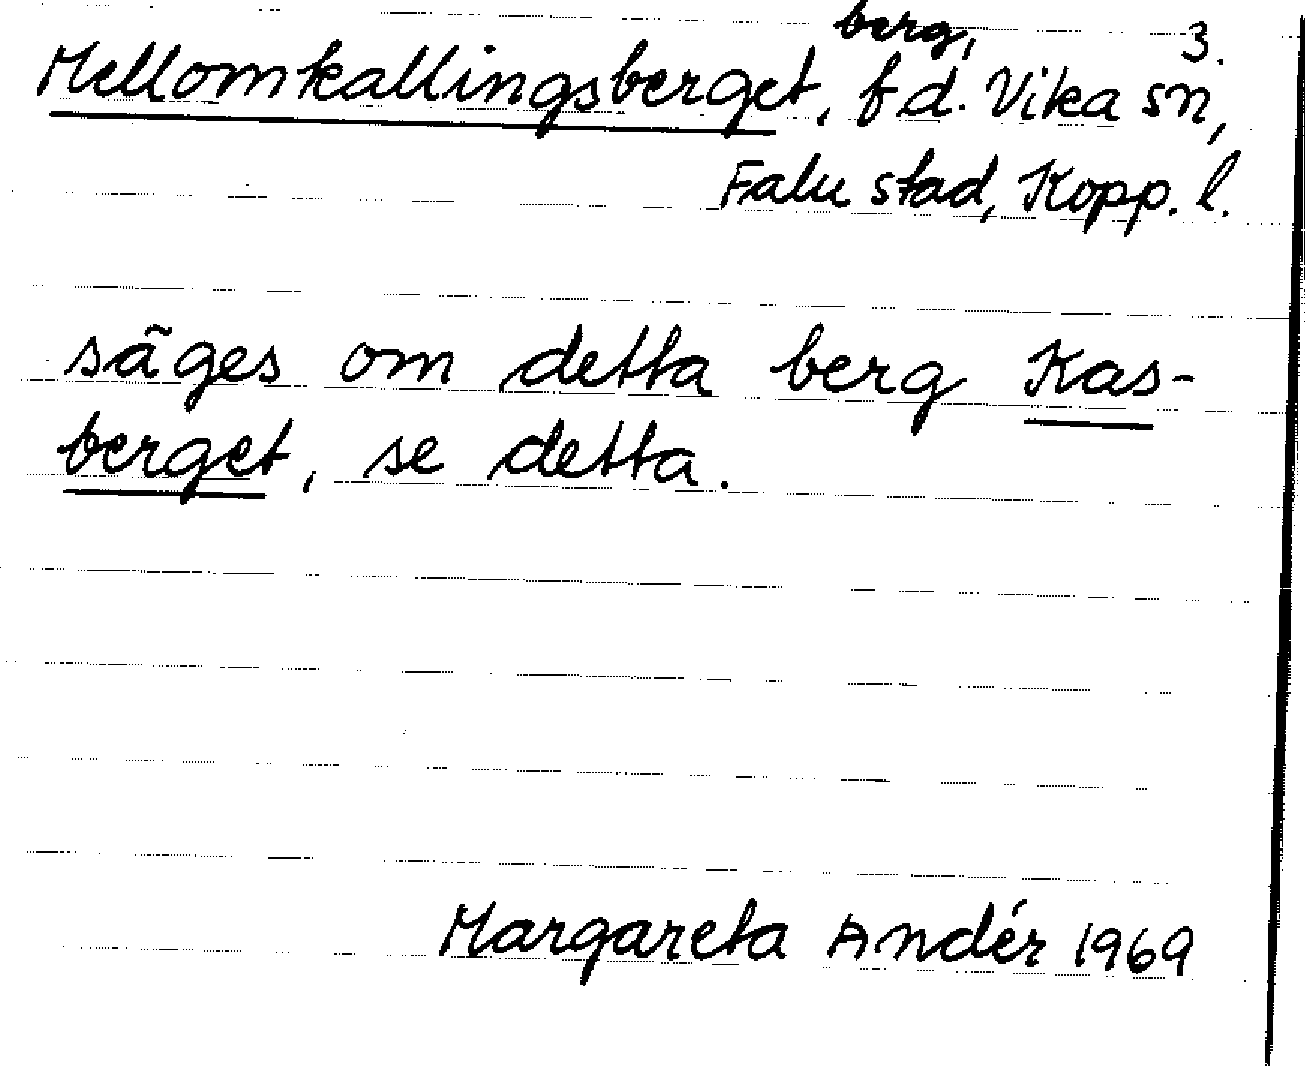 berg, 3.
Mellomkallingsberget, f d. Vika sn,
Falu stad, Kopp. l.
säges om detta berg Kas-
berget, se detta.
Margareta Andér 1969